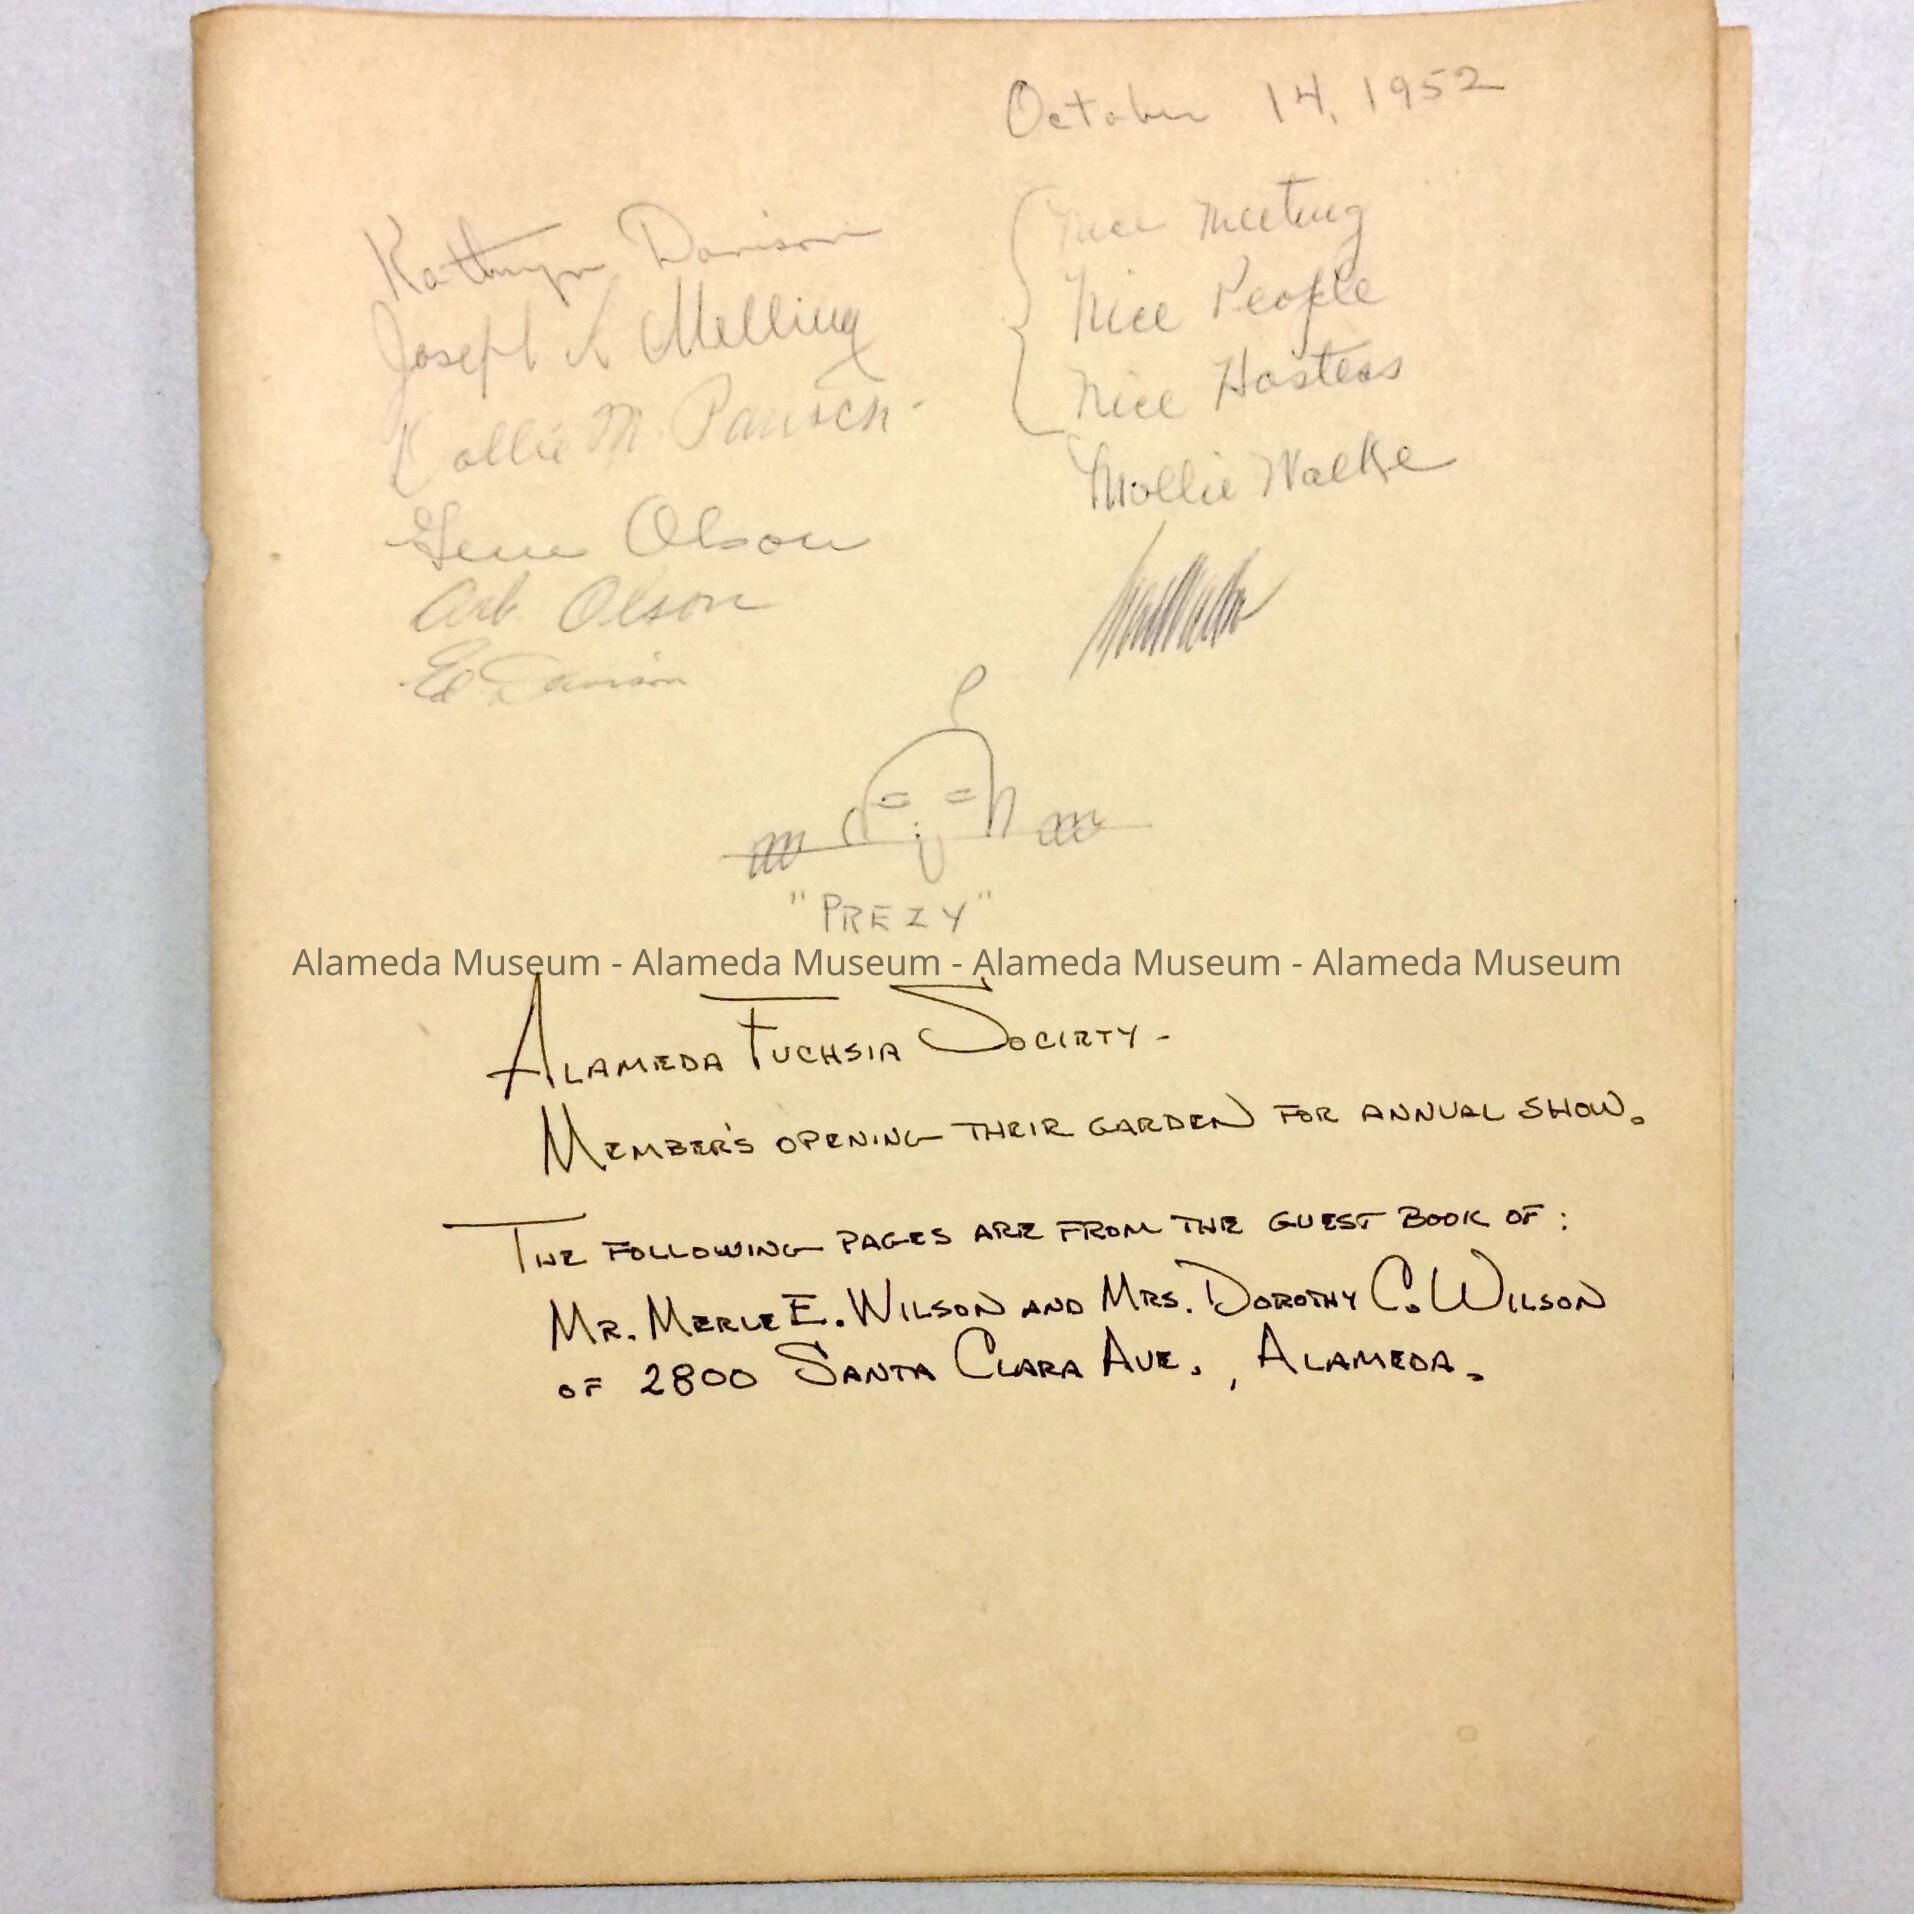 October 14, 1952
Kathryn Davison
Joseph L Melling
M.
Gene Olson
Olson
Ed Davison
Nice Meeting
Nice People
Nice Hostess
Mollie Walke
"PREZY"
Alameda Museum - Alameda Museum - Alameda Museum - Alameda Museum
ALAMEDA FUCHSIA SOCIETY -
MEMBER'S OPENING THEIR GARDEN FOR ANNUAL SHOW.
THE FOLLOWING PAGES ARE FROM THE GUEST BOOK OF:
MR. MERLE E. WILSON AND MRS. DOROTHY C. WILSON
OF 2800 SANTA CLARA AVE., ALAMEDA.